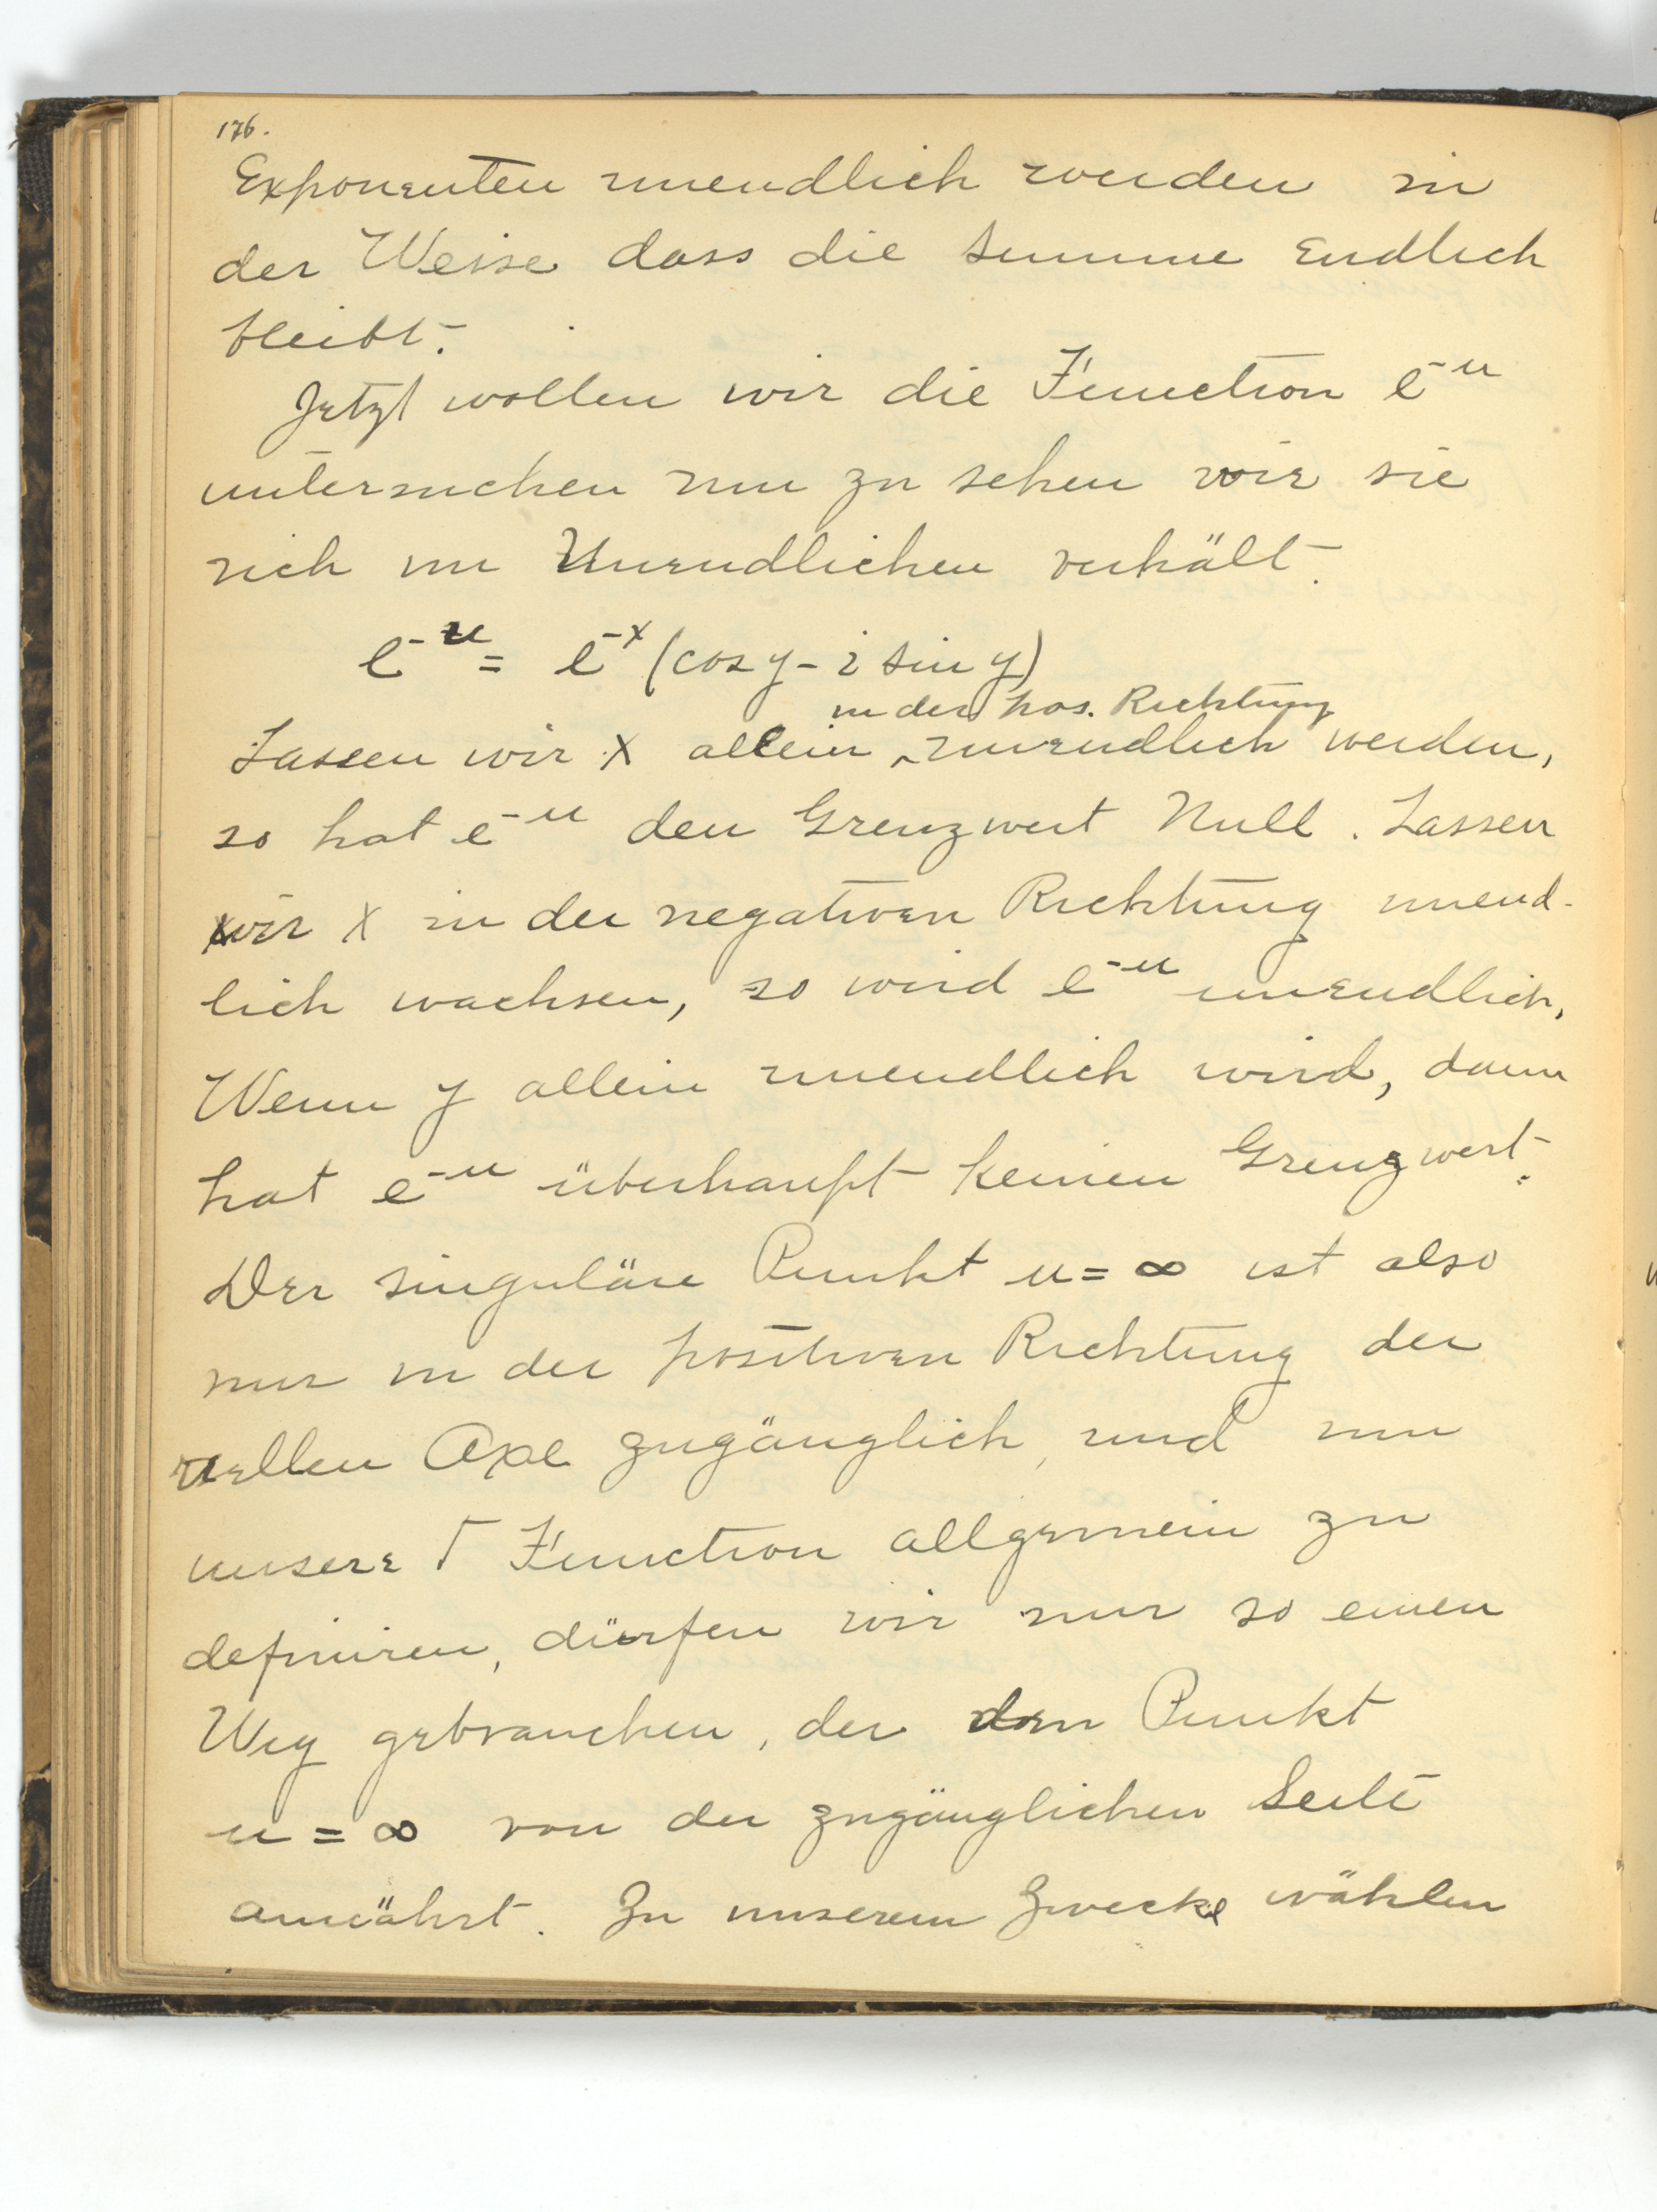 176.
Exponenten unendlich werden in
der Weise dass die Summe Endlich
bleibt.
Jetzt wollen wir die Function e^-u
untersuchen um zu sehen wie sie
sich im Unendlichen verhält.
e^-u = e^-x (cos y - i sin y)
in der pos. Richtung
Lassen wir x allein ‸ unendlich werden,
so hat e^-u den Grenzwert Null. Lassen
wir x in der negativen Richtung unend-
lich wachsen, so wird e^-u unendlich,
Wenn y allein unendlich wird, dann
hat e^-u überhaupt keinen Grenzwert.
Der singuläre Punkt u = ∞ ist also
nur in der positiven Richtung der
reellen Axe zugänglich, und um
unsere Γ Function allgemein zu
definiren, dürfen wir nur so einen
Weg gebrauchen, der den Punkt
u = ∞ von der zugänglichen Seite
. Zu unserem Zwecke wählen